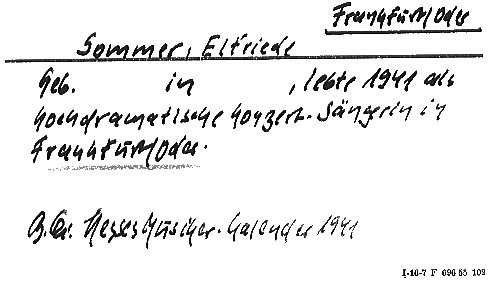 Frankfurt/Oder
Sommer, Elfriede
Geb. in , lebte 1941 als
hochdramatische Konzert-Sängerin in
Frankfurt/Oder.
Hesses Musiker-Kalender 1941
I-16-7 F 696 55 103